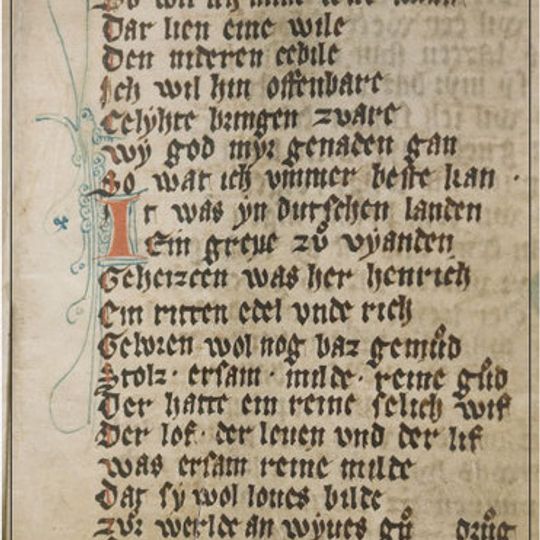 So wil ich
Dar lien eine wile
Den nideren eebile
Ich wil hin offenbare
Celyhte bringen zware
Wy god myr genaden gan
So war ich vmmer beste kan ·
It was yn dutschen landen
Ein greue zů vyanden
Geheizcen was her henrich
Ein ritter edel vnde rich
Geboren wol nog baz gemůd
Stolz · ersam · milde · reine gůd
Der hatte ein reine selich wif
Der lof · der leuen vnd der lif
was ersam reine milde
Dat sy wol loues bilde
zůr werlde an wyues gů drůg